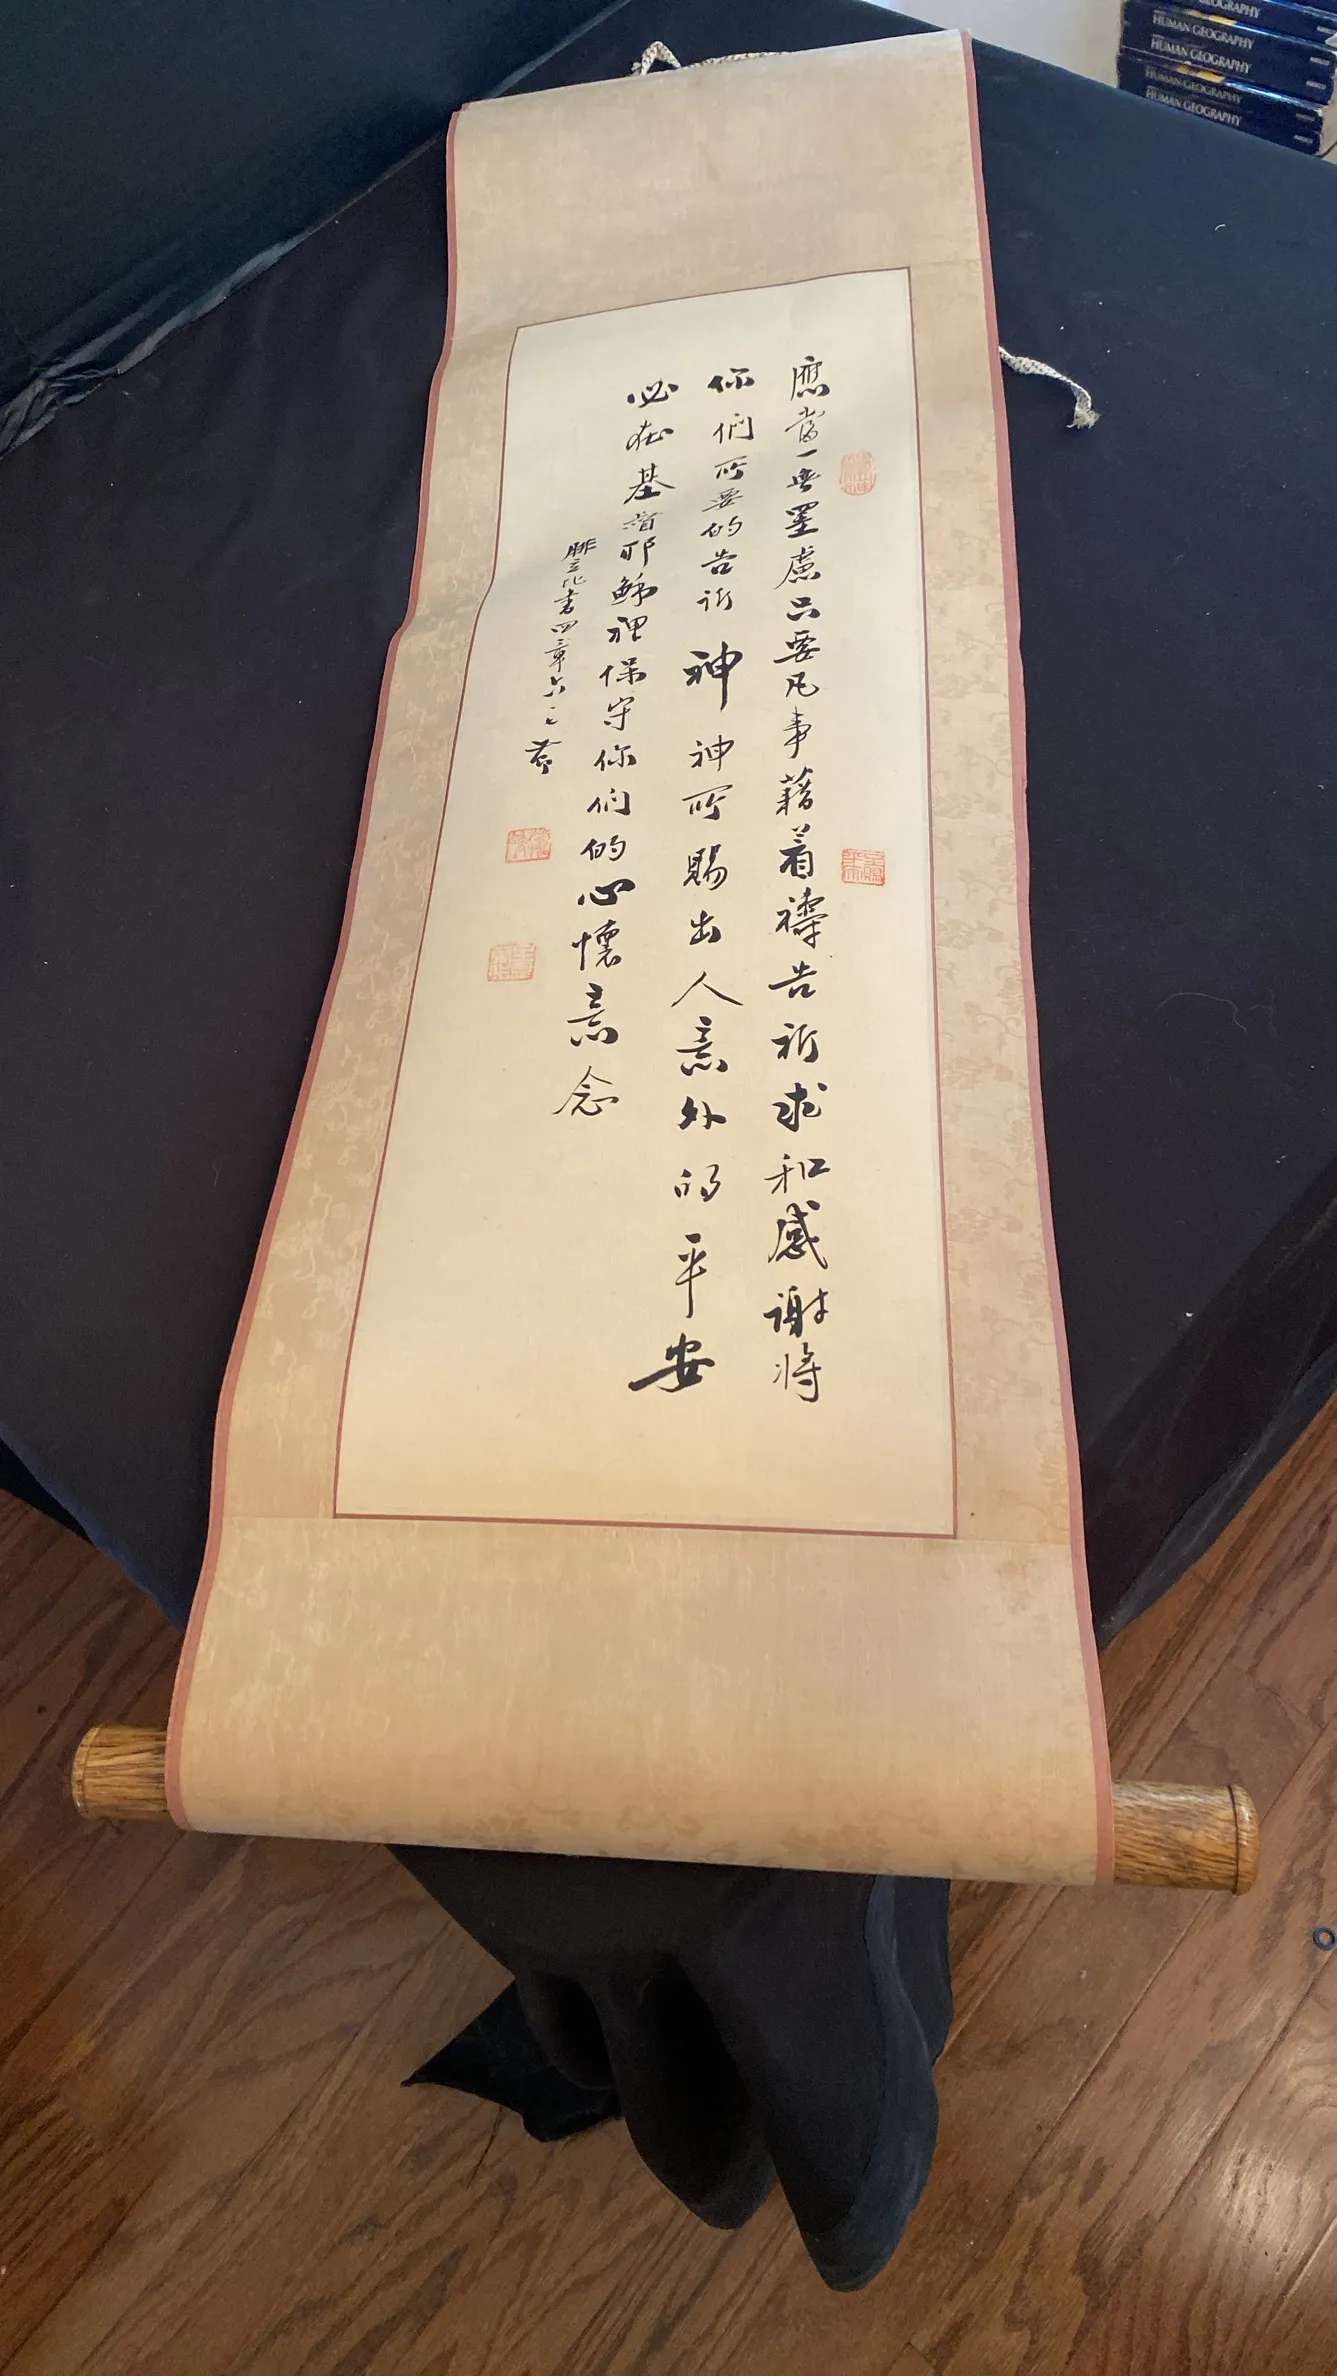 應當一無罣慮只要凡事藉着禱告祈求和感謝將
你們所要的告訴神神所賜出人意外的平安
必在基督耶穌裡保守你們的心懷意念
腓立比書四章六七節
GEOGRAPHY
HUMAN GEOGRAPHY
HUMAN GEOGRAPHY
HUMAN GEOGRAPHY
HUMAN GEOGRAPHY